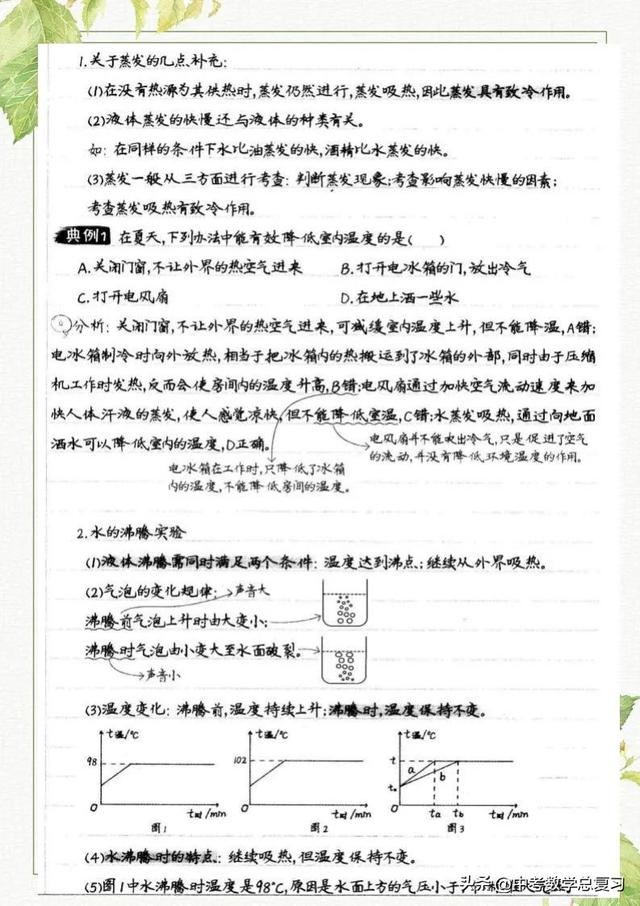 1.关于蒸发的几点补充:
(1)在没有热源为其供热时,蒸发仍然进行,蒸发吸热,因此蒸发具有致冷作用。
(2)液体蒸发的快慢还与液体的种类有关。
如:在同样的条件下水比油蒸发的快,酒精比水蒸发的快。
(3)蒸发一般从三方面进行考查:判断蒸发现象;考查影响蒸发快慢的因素;
考查蒸发吸热有致冷作用。
典例1 在夏天,下列办法中能有效降低室内温度的是( )
A.关闭门窗,不让外界的热空气进来 B.打开电冰箱的门,放出冷气
C.打开电风扇 D.在地上洒一些水
分析:关闭门窗,不让外界的热空气进来,可减缓室内温度上升,但不能降温,A错;
电冰箱制冷时向外放热,相当于把冰箱内的热搬运到了冰箱的外部,同时由于压缩
机工作时发热,反而会使房间内的温度升高,B错;电风扇通过加快空气流动速度来加
快人体汗液的蒸发,使人感觉凉快,但不能降低室温,C错;水蒸发吸热,通过向地面
洒水可以降低室内的温度,D正确。
电风扇并不能吹出冷气,只是促进了空气
的流动,并没有降低环境温度的作用。
电冰箱在工作时,只降低了冰箱
内的温度,不能降低房间的温度。
2.水的沸腾实验
(1)液体沸腾需同时满足两个条件:温度达到沸点;继续从外界吸热。
(2)气泡的变化规律: 声音大
沸腾前气泡上升时由大变小;
沸腾时气泡由小变大至水面破裂。
声音小
(3)温度变化:沸腾前,温度持续上升;沸腾时,温度保持不变。
t温/℃ t温/℃ t温/℃
98 102 t
a b
t₀
0 t时/min 0 t时/min 0 ta tb t时/min
图1 图2 图3
(4)水沸腾时的特点:继续吸热,但温度保持不变。
(5)图1中水沸腾时温度是98℃,原因是水面上方的气压小于
头条@中考数学总复习